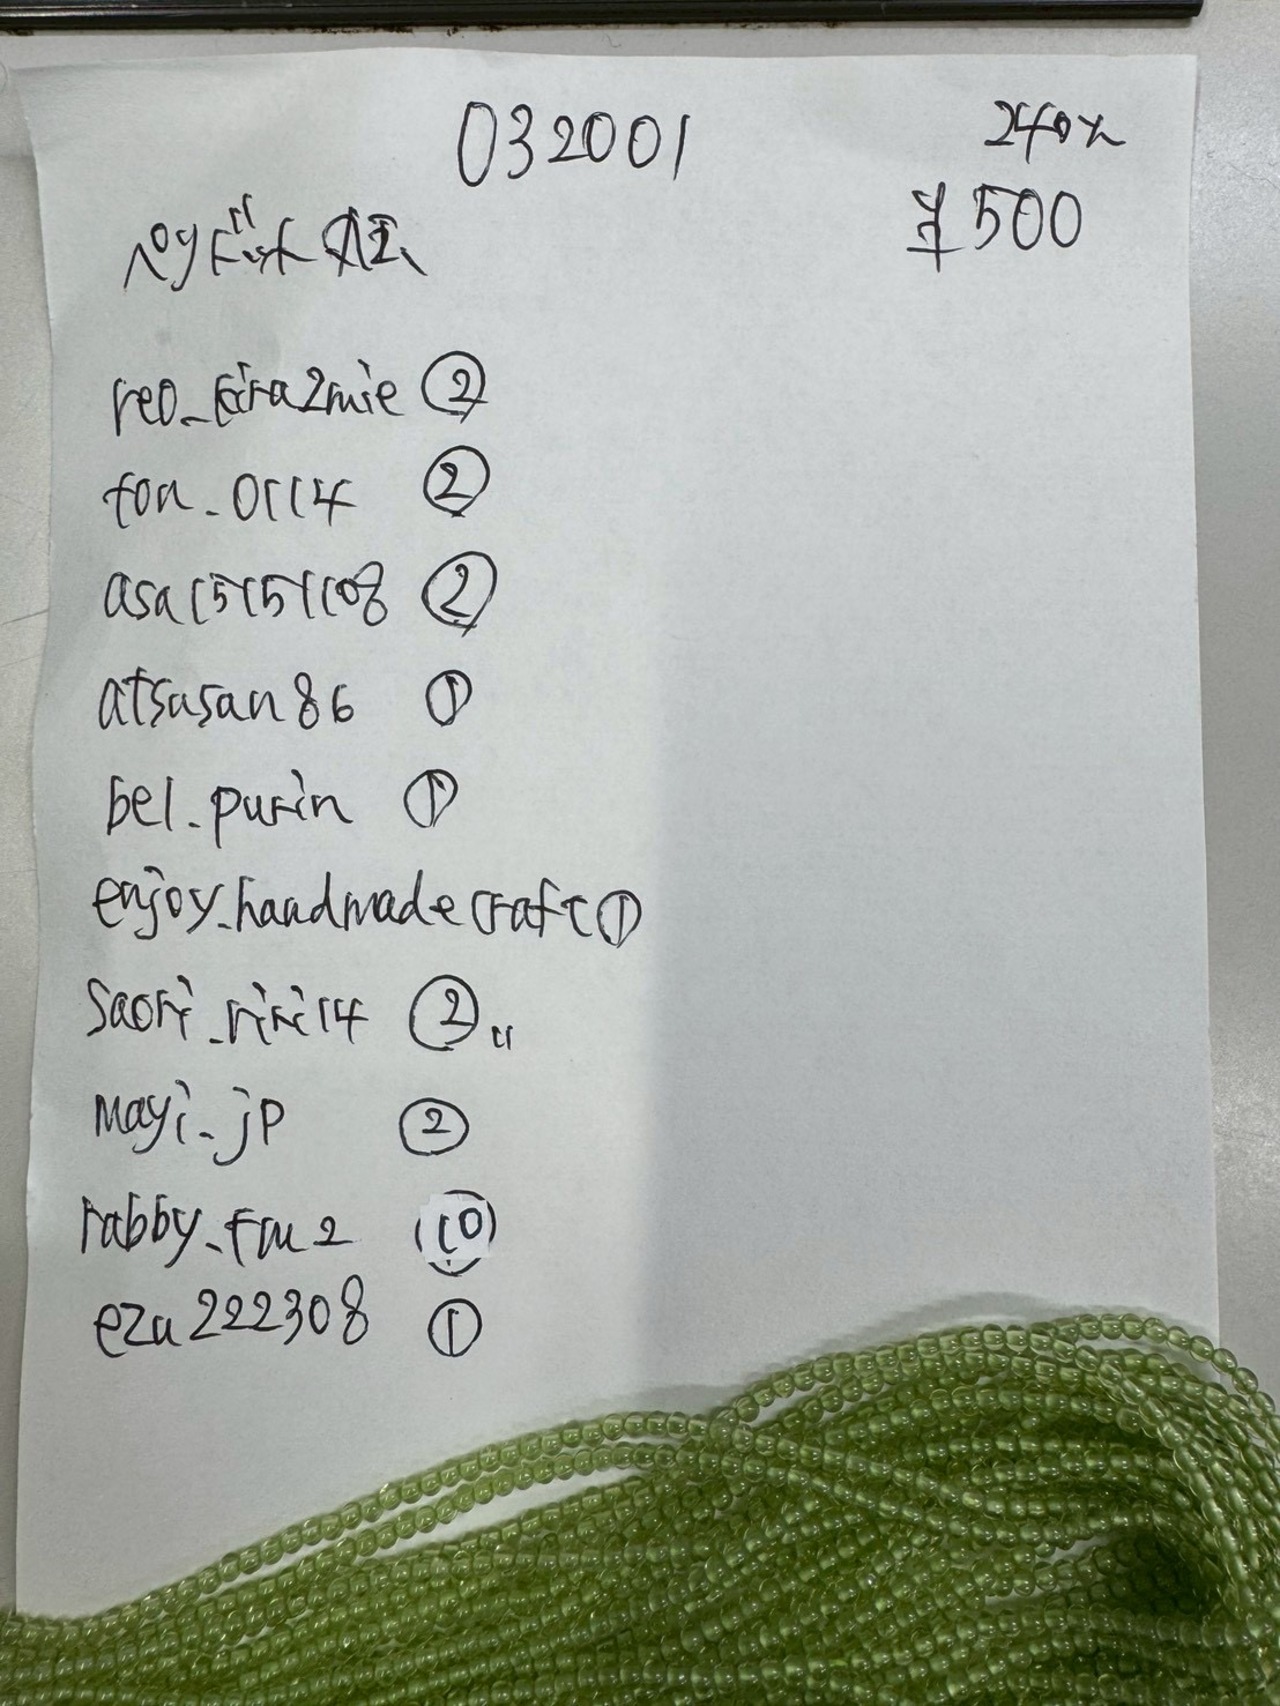 032001
240本
¥500
ペリドット AI
reo_kira2mie ②
ton_0114 ②
asa15151108 ②
atsusan86 ①
bel_purin ①
enjoy_handmadecraft ①
saori_riri14 ② 〃
mayi_jp ②
rabby_fm2 ⑩
eza222308 ①